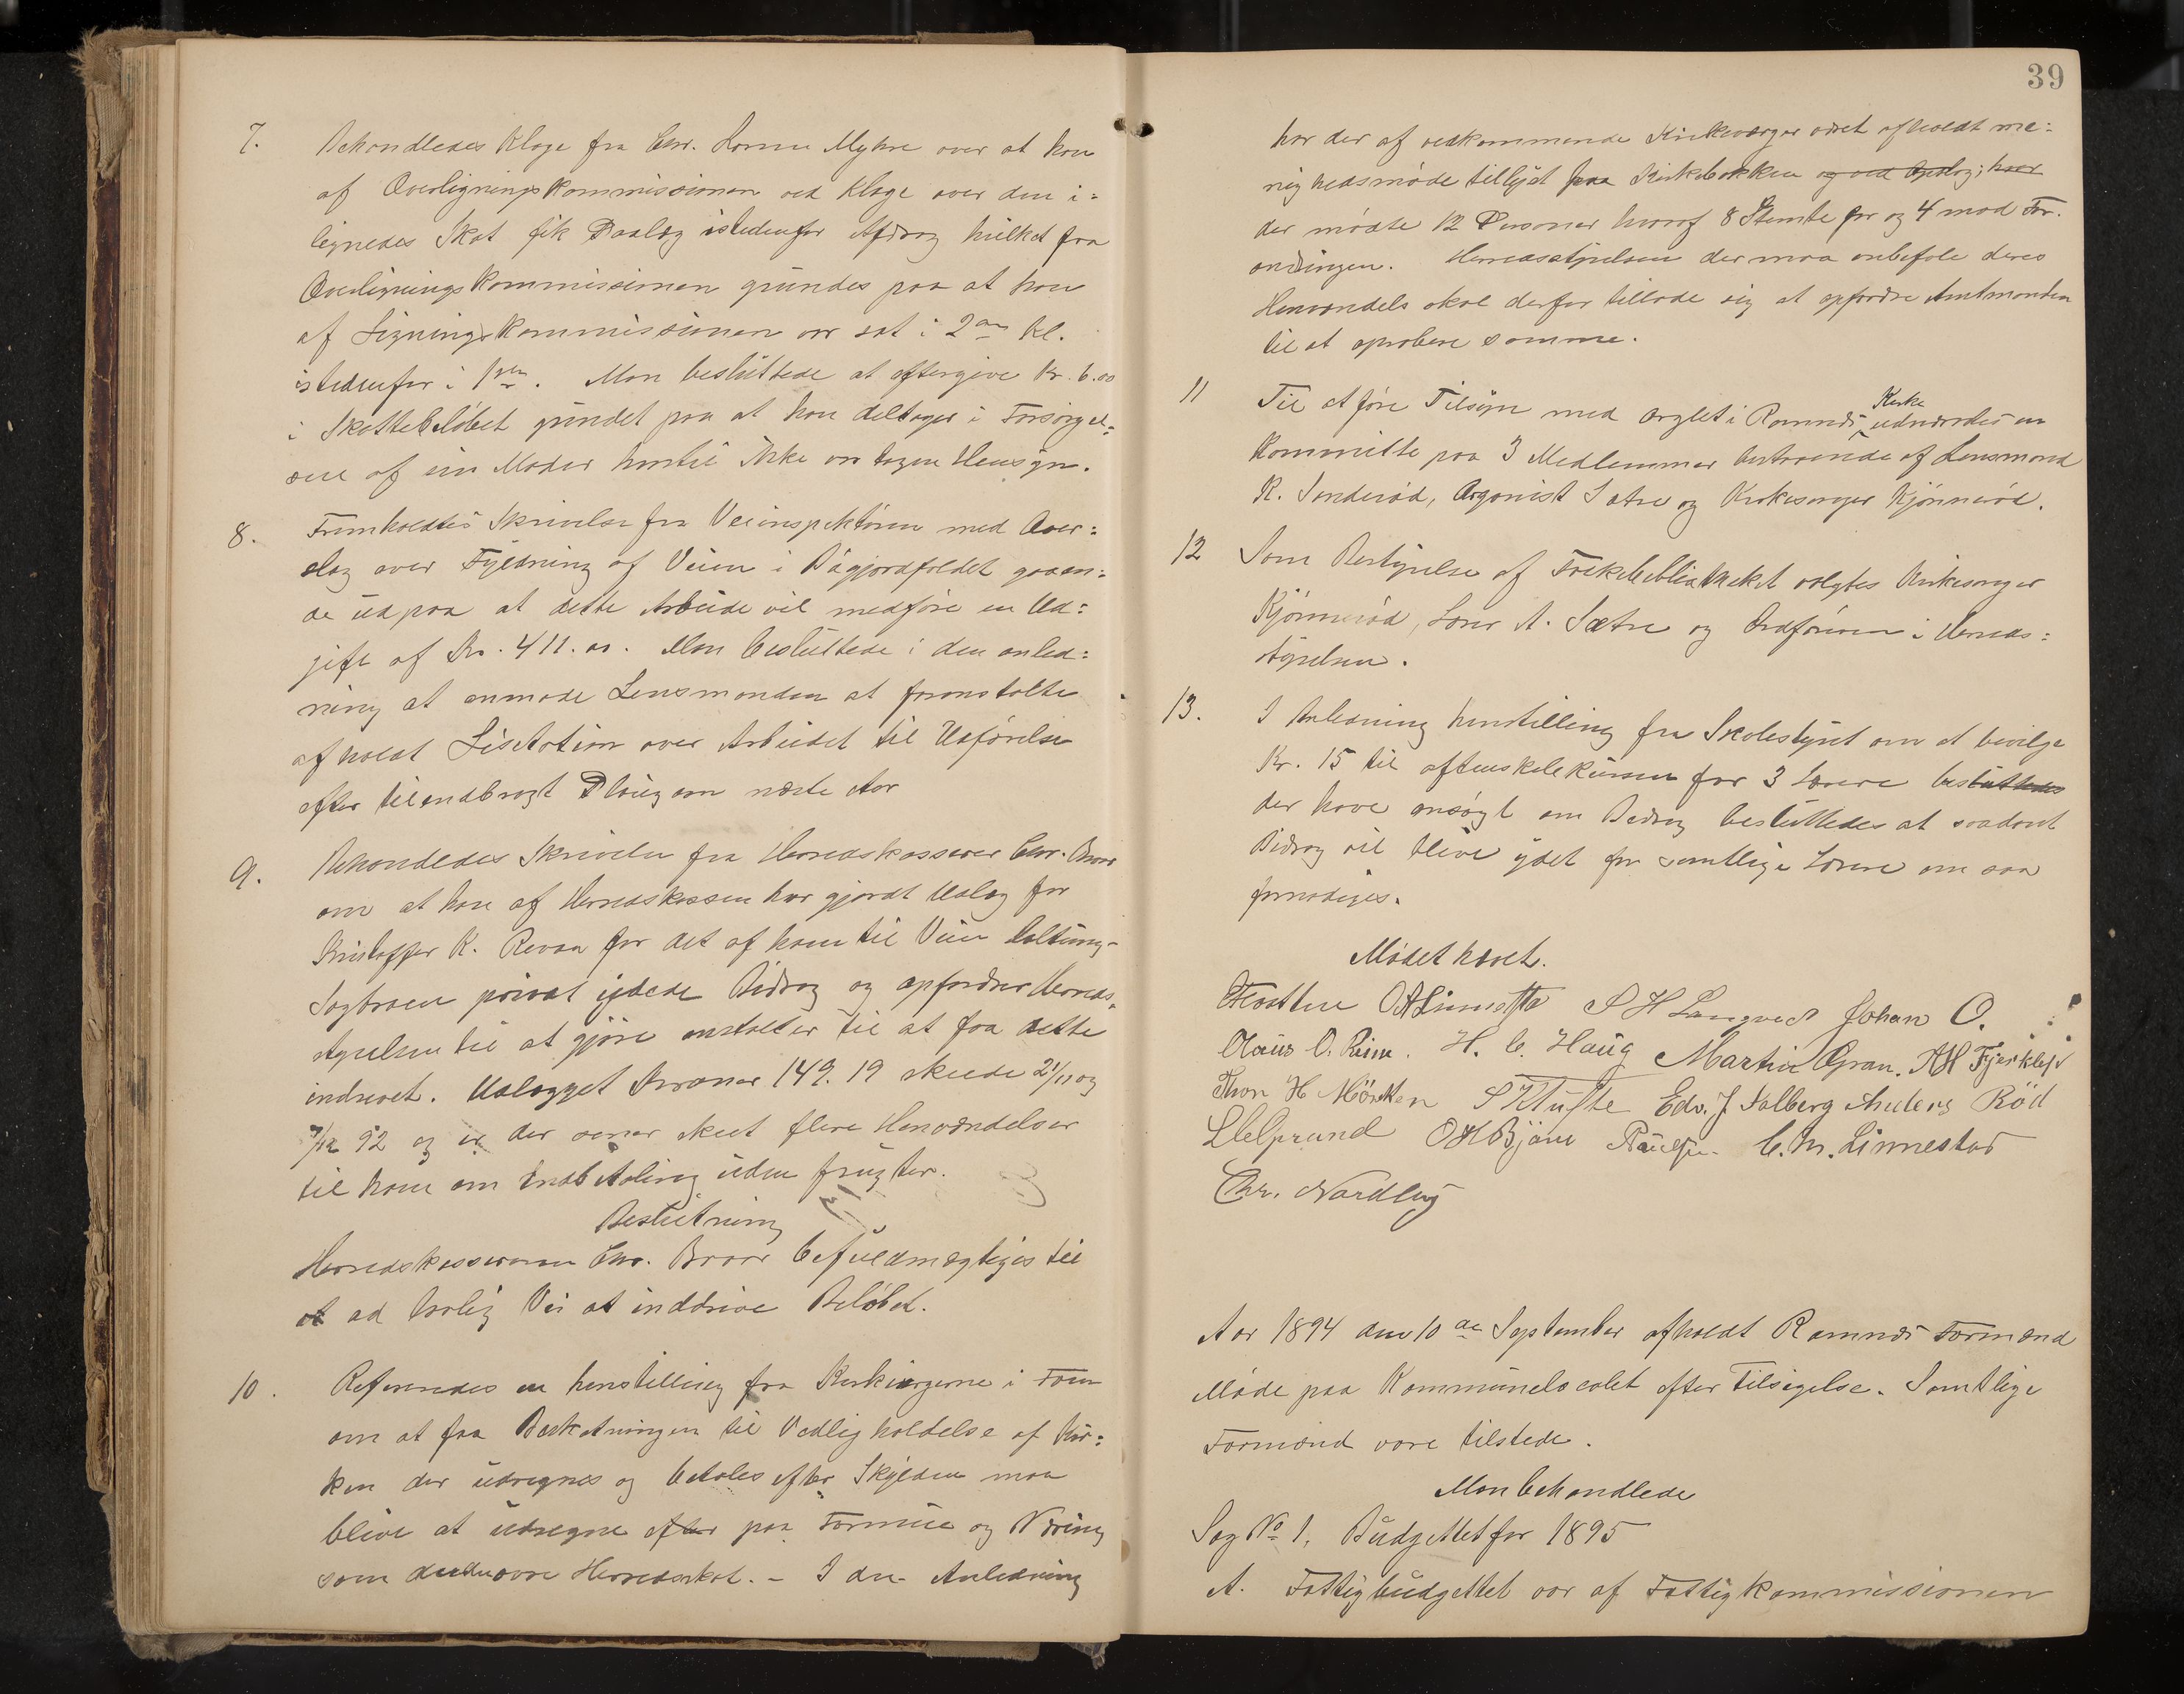 7. Behandledes Klage fra Chr. Horne Myhre over at han
af Overligningskommissionen ved Klage over den i=
lignedes Skat fik Paalæg istedenfor Afdrag hvilket fra
Overligningskommissionen grundes paa at han
af Ligningskommissionen var sat i 2den Kl.
istedenfor i 1ste. Man besluttede at eftergive Kr. 6.00
i Skattebeløbet grundet paa at han deltager i Forsørgel=
sen af sin Moder hvortil ikke var tagen Hensyn.
8. Fremholdtes Skrivelse fra Veiinspektøren med Over=
slag over Fyldning af Veien i gaaen=
de ud paa at dette Arbeide vil medføre en Ud=
gift af Kr. 411.00. Man besluttede i den anled=
ning at anmode Lensmanden at foranstalte
afholdt Lisitation over Arbeidet til Udførelse
efter tilendebragt Pløug om næste Aar
9. Behandledes Skrivelse fra Herredskasserer Chr. Braar
om at han af Herredskassen har gjordt Udlæg for
Kristoffer K. Revaa for det af ham til Veien
Sagbraaen privat ydede Bidrag og opfordrer Herreds=
styrelsen til at gjøre anstalter til at faa dette
indrevet. Udlægget Kroner 149.19 skeede 21/11 og
7/12 92 og er der senere skeet flere Henvendelser
til ham om Indbetaling uden frugter.
Beslutning
Herredskassereren Chr. Braar befuldmægtiges til
at ad lovlig Vei at inddrive Beløbet.
10. Refereredes en henstilling fra Kirkeværgerne i Fon
om at faa Beskatningen til Vedligholdelse af Kir=
ken der udregnes og betales efter Skylden maa
blive at udregne efter paa Formue og Næring
som Herredsskat. - I den Anledning
39
har der af vedkommende Kirkeværger været afholdt me=
nighedsmøde tillyst paa Kirkebakken og ved Opslag; hvor
der mødte 12 Personer hvoraf 8 Stemte for og 4 mod For.
andringen. Herredsstyrelsen der maa anbefale deres
Henvendels skal derfor tillade sig at opfordre Amtmanden
til at aprobere samme.
11 Til at føre Tilsyn med orglet i Ramnæs Kirke udnævntes en
Kommitte paa 3 Medlemmer bestaaende af Lensmand
K. Sønderød, Organist Sætre og Kirkesanger Kjønnerød.
12 Som Bestyrelse af Folkebibliotheket valgtes Kirkesanger
Kjønnerød, Lærer A. Sætre og Ordføreren i Herreds=
styrelsen.
13. I Anledning henstilling fra Skolestyret om at bevilge
Kr. 15 til aftenskolekursus for 3 Lærere besluttedes
der have ansøgt om Bidrag besluttedes at saadant
Bidrag vil blive ydet for samtlige Lærere om saa
fornødiges.
Mødet hævet.
O A Linnestad S H Langved Johan O.
Olaus O. Reim. H. C. Haug Martin Gran. A H Fjærkleft
Thor H Mørken S Klufte Edv. J. Solberg Anders Rød
O H Bjäne Paulsen. C. M. Linnestad
Chr. Nordlag
Aar 1894 den 10de September afholdt Ramnæs Formænd
Møde paa Kommunelocalet efter Tilsigelse. Samtlige
Formænd vare tilstede.
Man behandlede
Sag No 1. Büdgettet for 1895
A. Fattigbüdgettet var af Fattigkommissionen